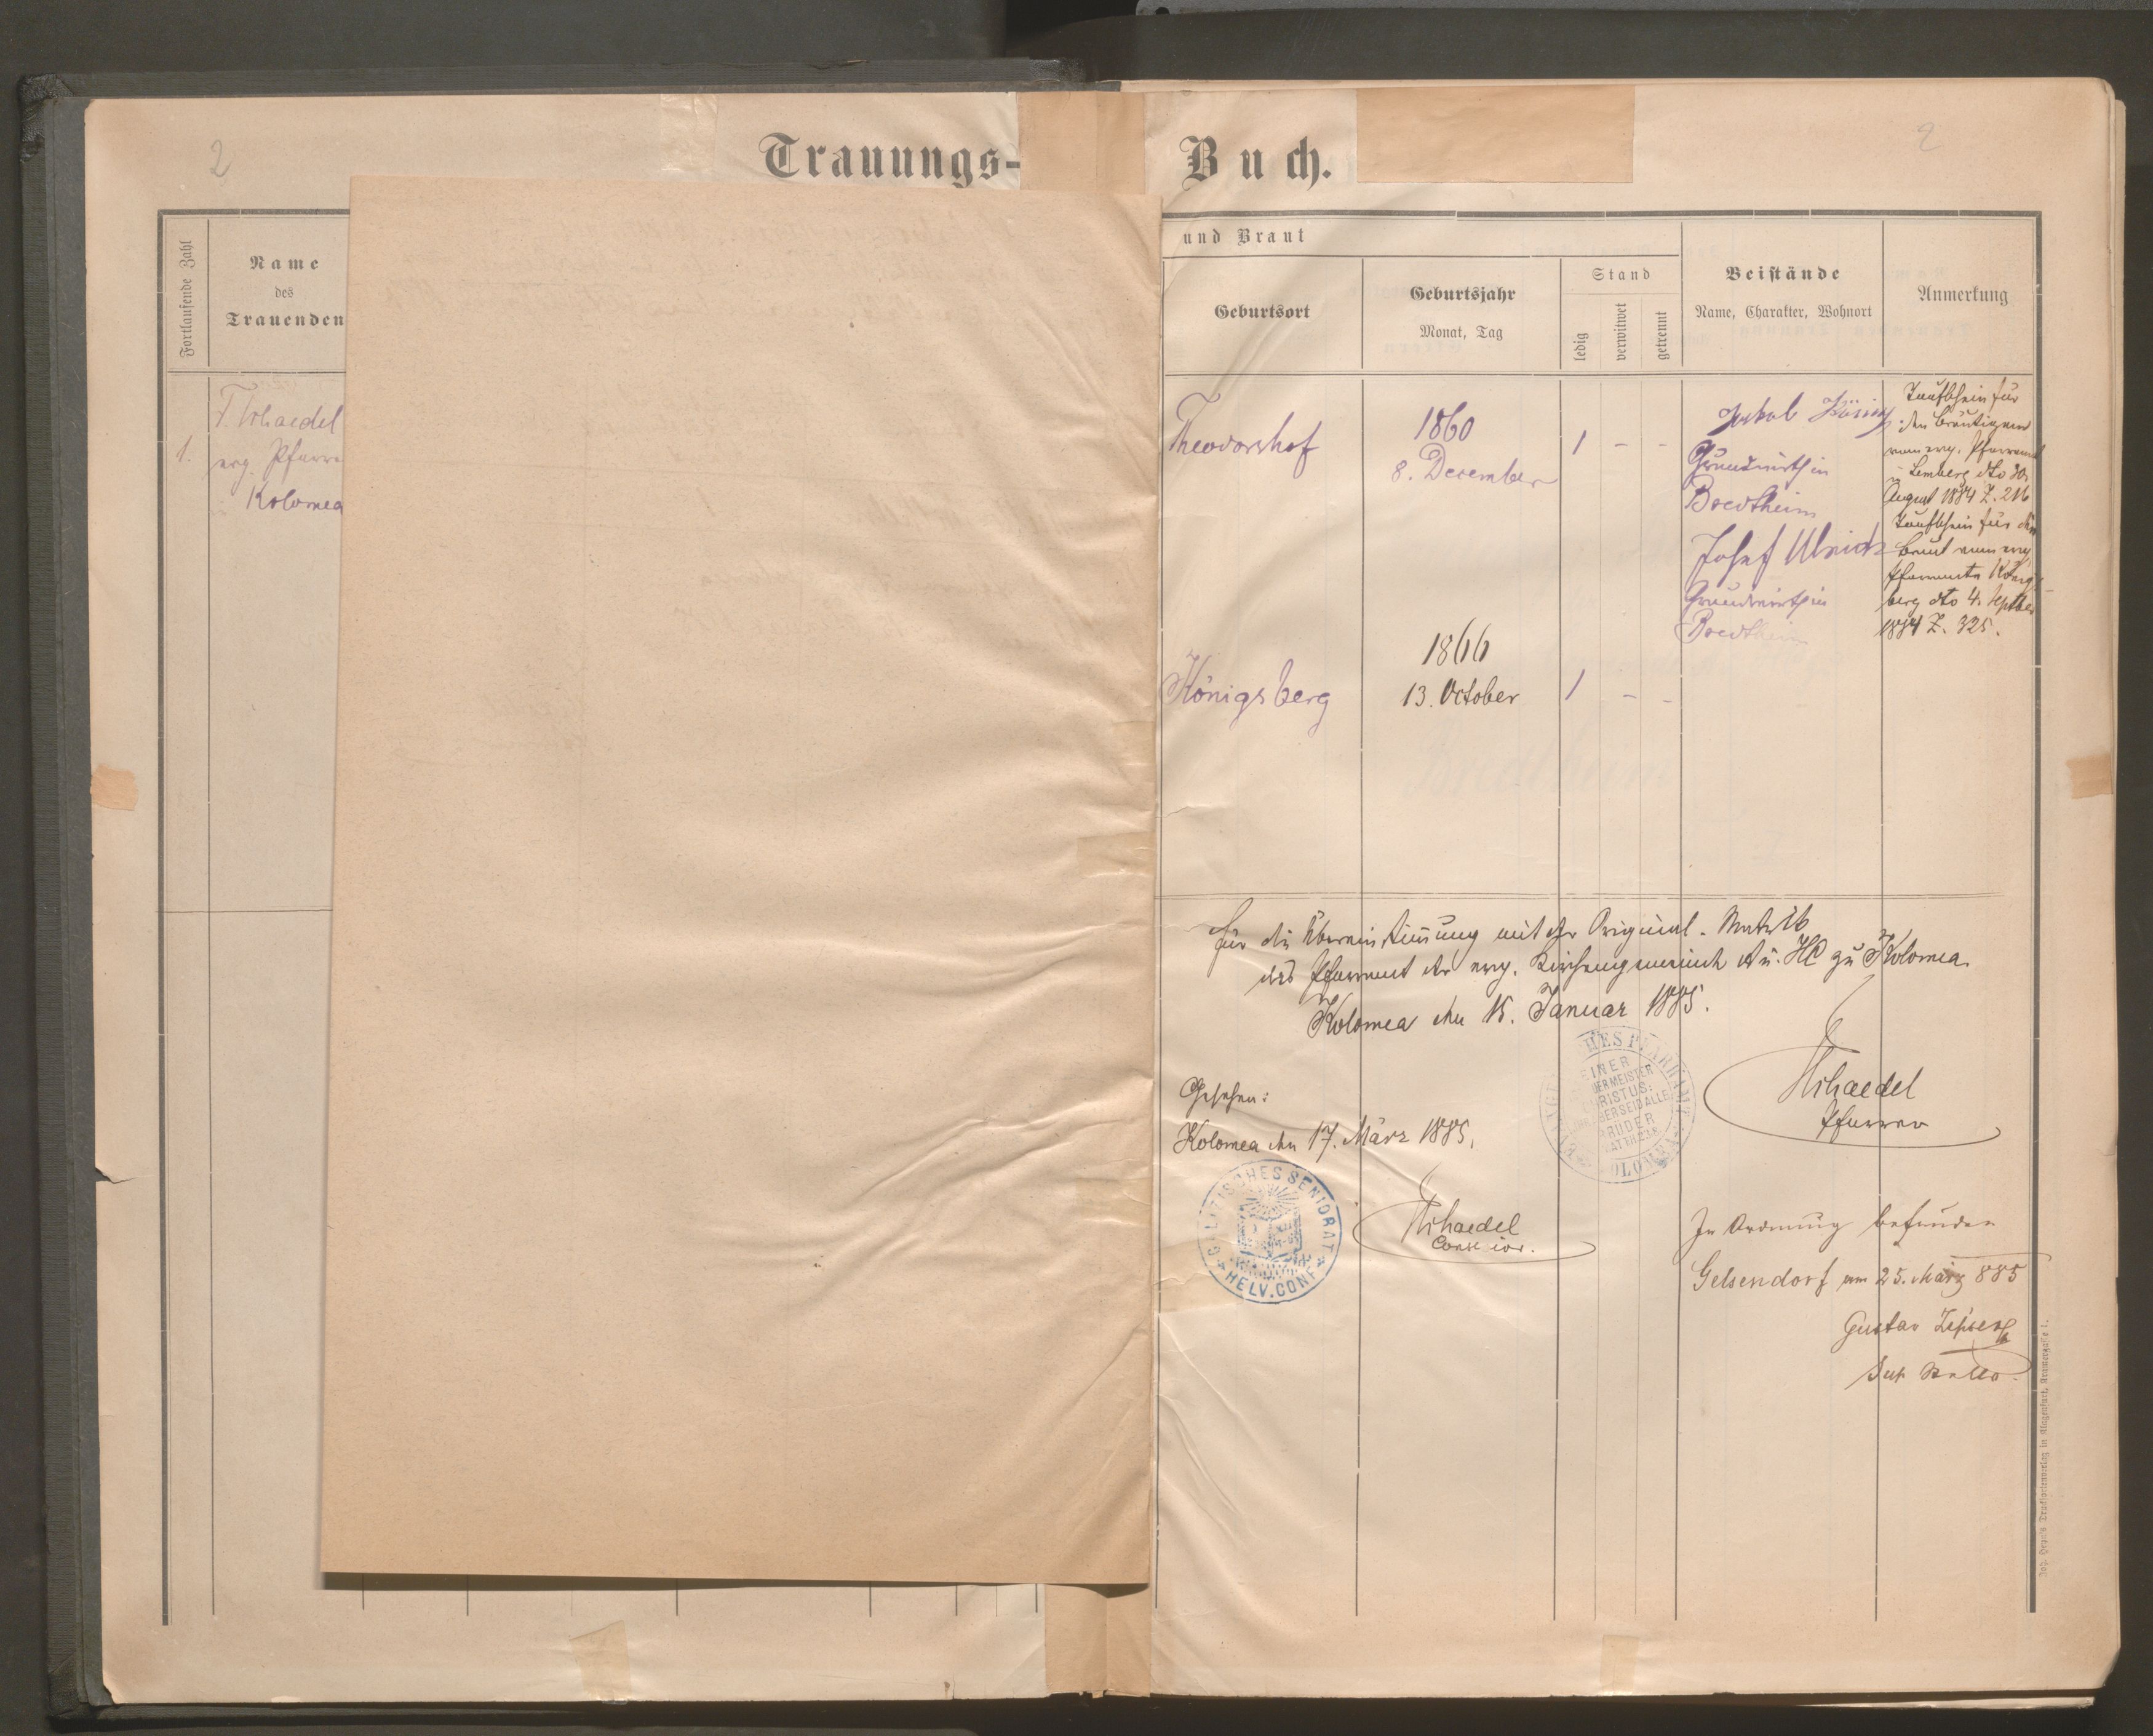 2
Trauungs-
Buch.
2
Fortlaufende Zahl
Name
des
Trauenden
und Braut
Geburtsort
Geburtsjahr
Monat, Tag
Stand
ledig
verwitwet
getrennt
Beistände
Name, Charakter, Wohnort
Anmerkung
1.
evg. Pfarre
Kolomea
Theodorshof
1860
8. December
1 - -
Jakob
Grundwirth in
Bredtheim
Josef Ulrich
Grundwirth in
Bredtheim
Taufschein für
den Bräutigam
vom evg. Pfarramt
in Lemberg dto 30.
August 1884 Z. 216
Taufschein für die
Braut vom evg
Pfarramte Königs-
berg dto 4. Septber
1884 Z. 325.
Königsberg
1866
13. October
1 - -
Für die Übereinstimmung mit der Original-Matrik
des Pfarramt der evg. Kirchengemeinde A u. HC zu Kolomea.
Kolomea den 15. Januar 1885.
Pfarrer
Gesehen:
Kolomea den 17. März 1885.
Consenior.
GALIZISCHES SENIORAT
HELV. CONF
EINER
CHRISTUS:
BRÜDER
KOLOMEA
In Ordnung befunden
Gelsendorf am 25. März 885
Gustav